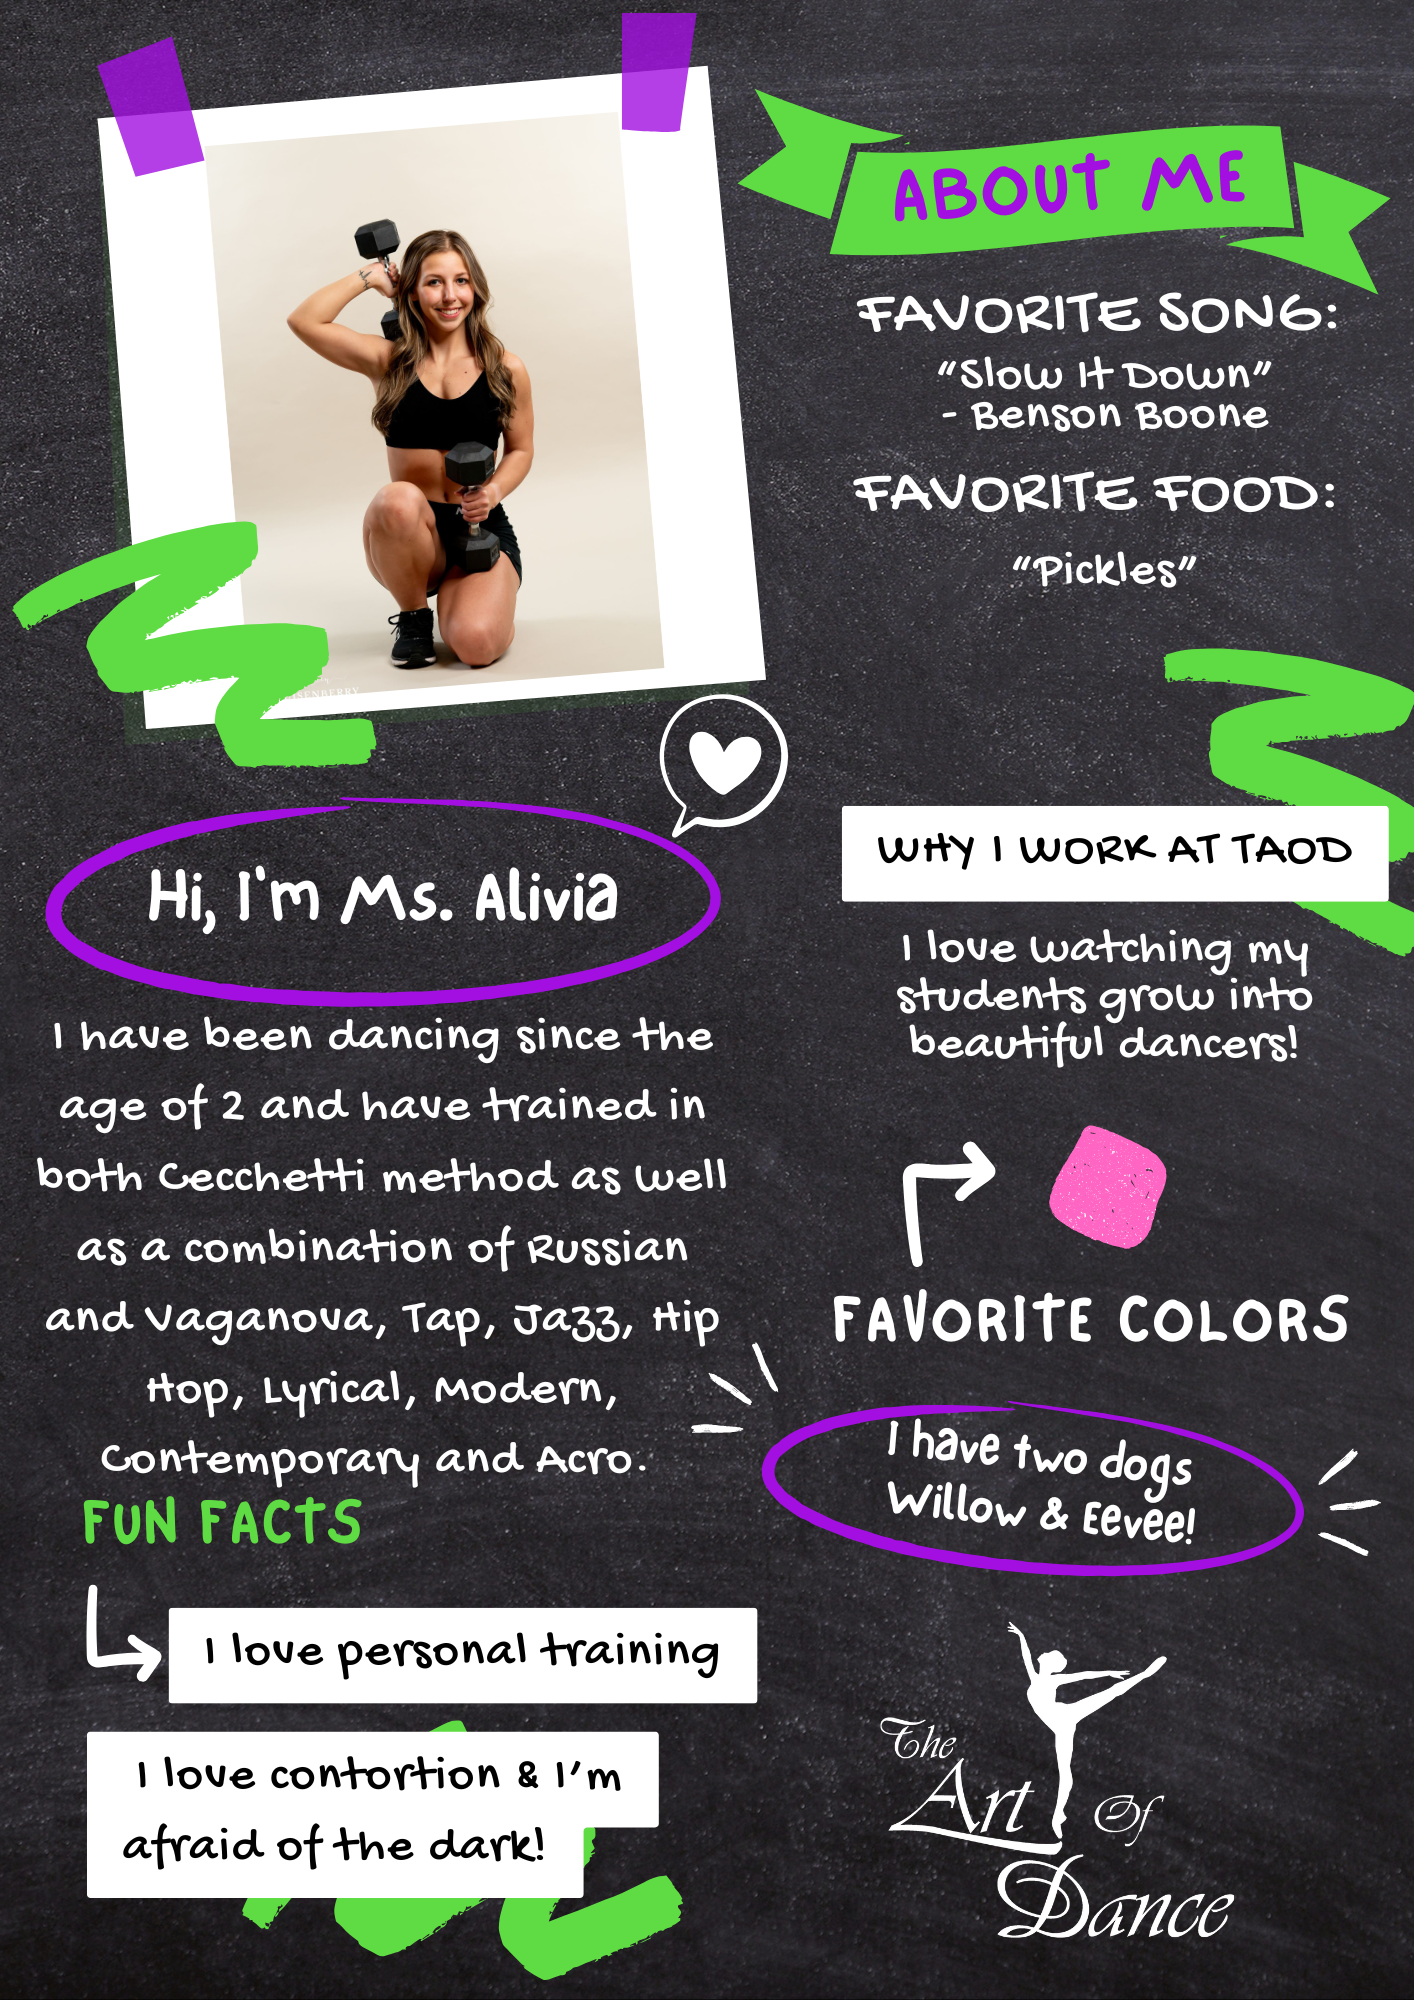 ABOUT ME
FAVORITE SONG:
"Slow It Down"
- Benson Boone
FAVORITE FOOD:
"Pickles"
ISENBERRY
Hi, I'm Ms. Alivia
I have been dancing since the
age of 2 and have trained in
both Cecchetti method as well
as a combination of Russian
and Vaganova, Tap, Jazz, Hip
Hop, Lyrical, Modern,
Contemporary and Acro.
WHY I WORK AT TAOD
I love watching my
students grow into
beautiful dancers!
FAVORITE COLORS
I have two dogs
Willow & Eevee!
FUN FACTS
I love personal training
I love contortion & I'm
afraid of the dark!
The
Art Of
Dance